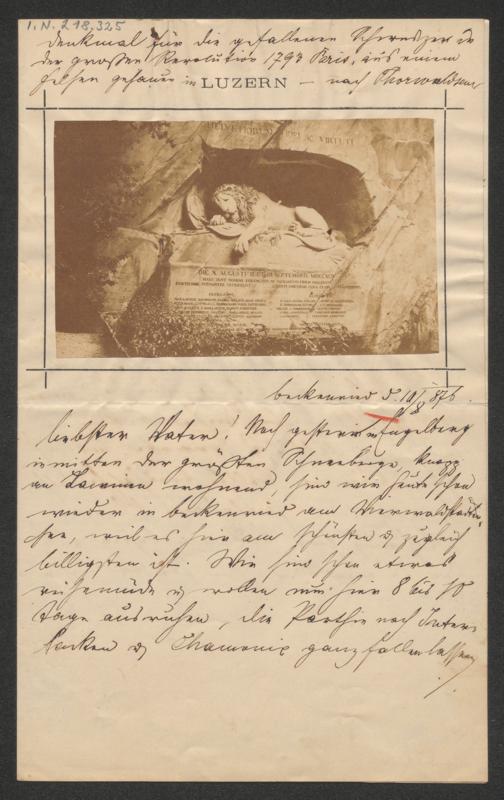 I.N. 218.325
Denkmal für die gefallenen Schweizer in
der großen Revolution 1793 Paris, aus einem
Felsen gehauen in LUZERN – nach Thorwaldsen
HELVETIORUM FIDEI AC VIRTUTI
DIE X AUGUSTI II ET III SEPTEMBRIS MDCCXCII
beckenried d. 10/8 876.
liebster Vater! Noch gestern in Engelberg
inmitten der größten Schneeberge, knapp
an wohnend, sind wir heute schon
wieder in beckenried am Vierwaldstädter
See, weil es hier am schönsten & zugleich
billigsten ist. Wir sind schon etwas
reisemüde & wollen nun hier 8 bis 10
Tage ausruhen, die Parthie nach Inter-
lacken & Chamonix ganz fallen lassend